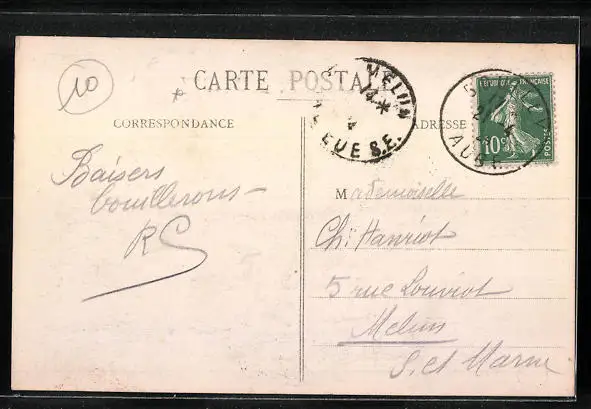 10
CARTE POSTALE
MELUN
14
S.E.
RÉPUBLIQUE FRANÇAISE
10c
POSTES
AUBE
CORRESPONDANCE
ADRESSE
Baisers
RC
Mademoiselle
Ch. Hanriot
5 rue Louviot
Melun
S. et Marne